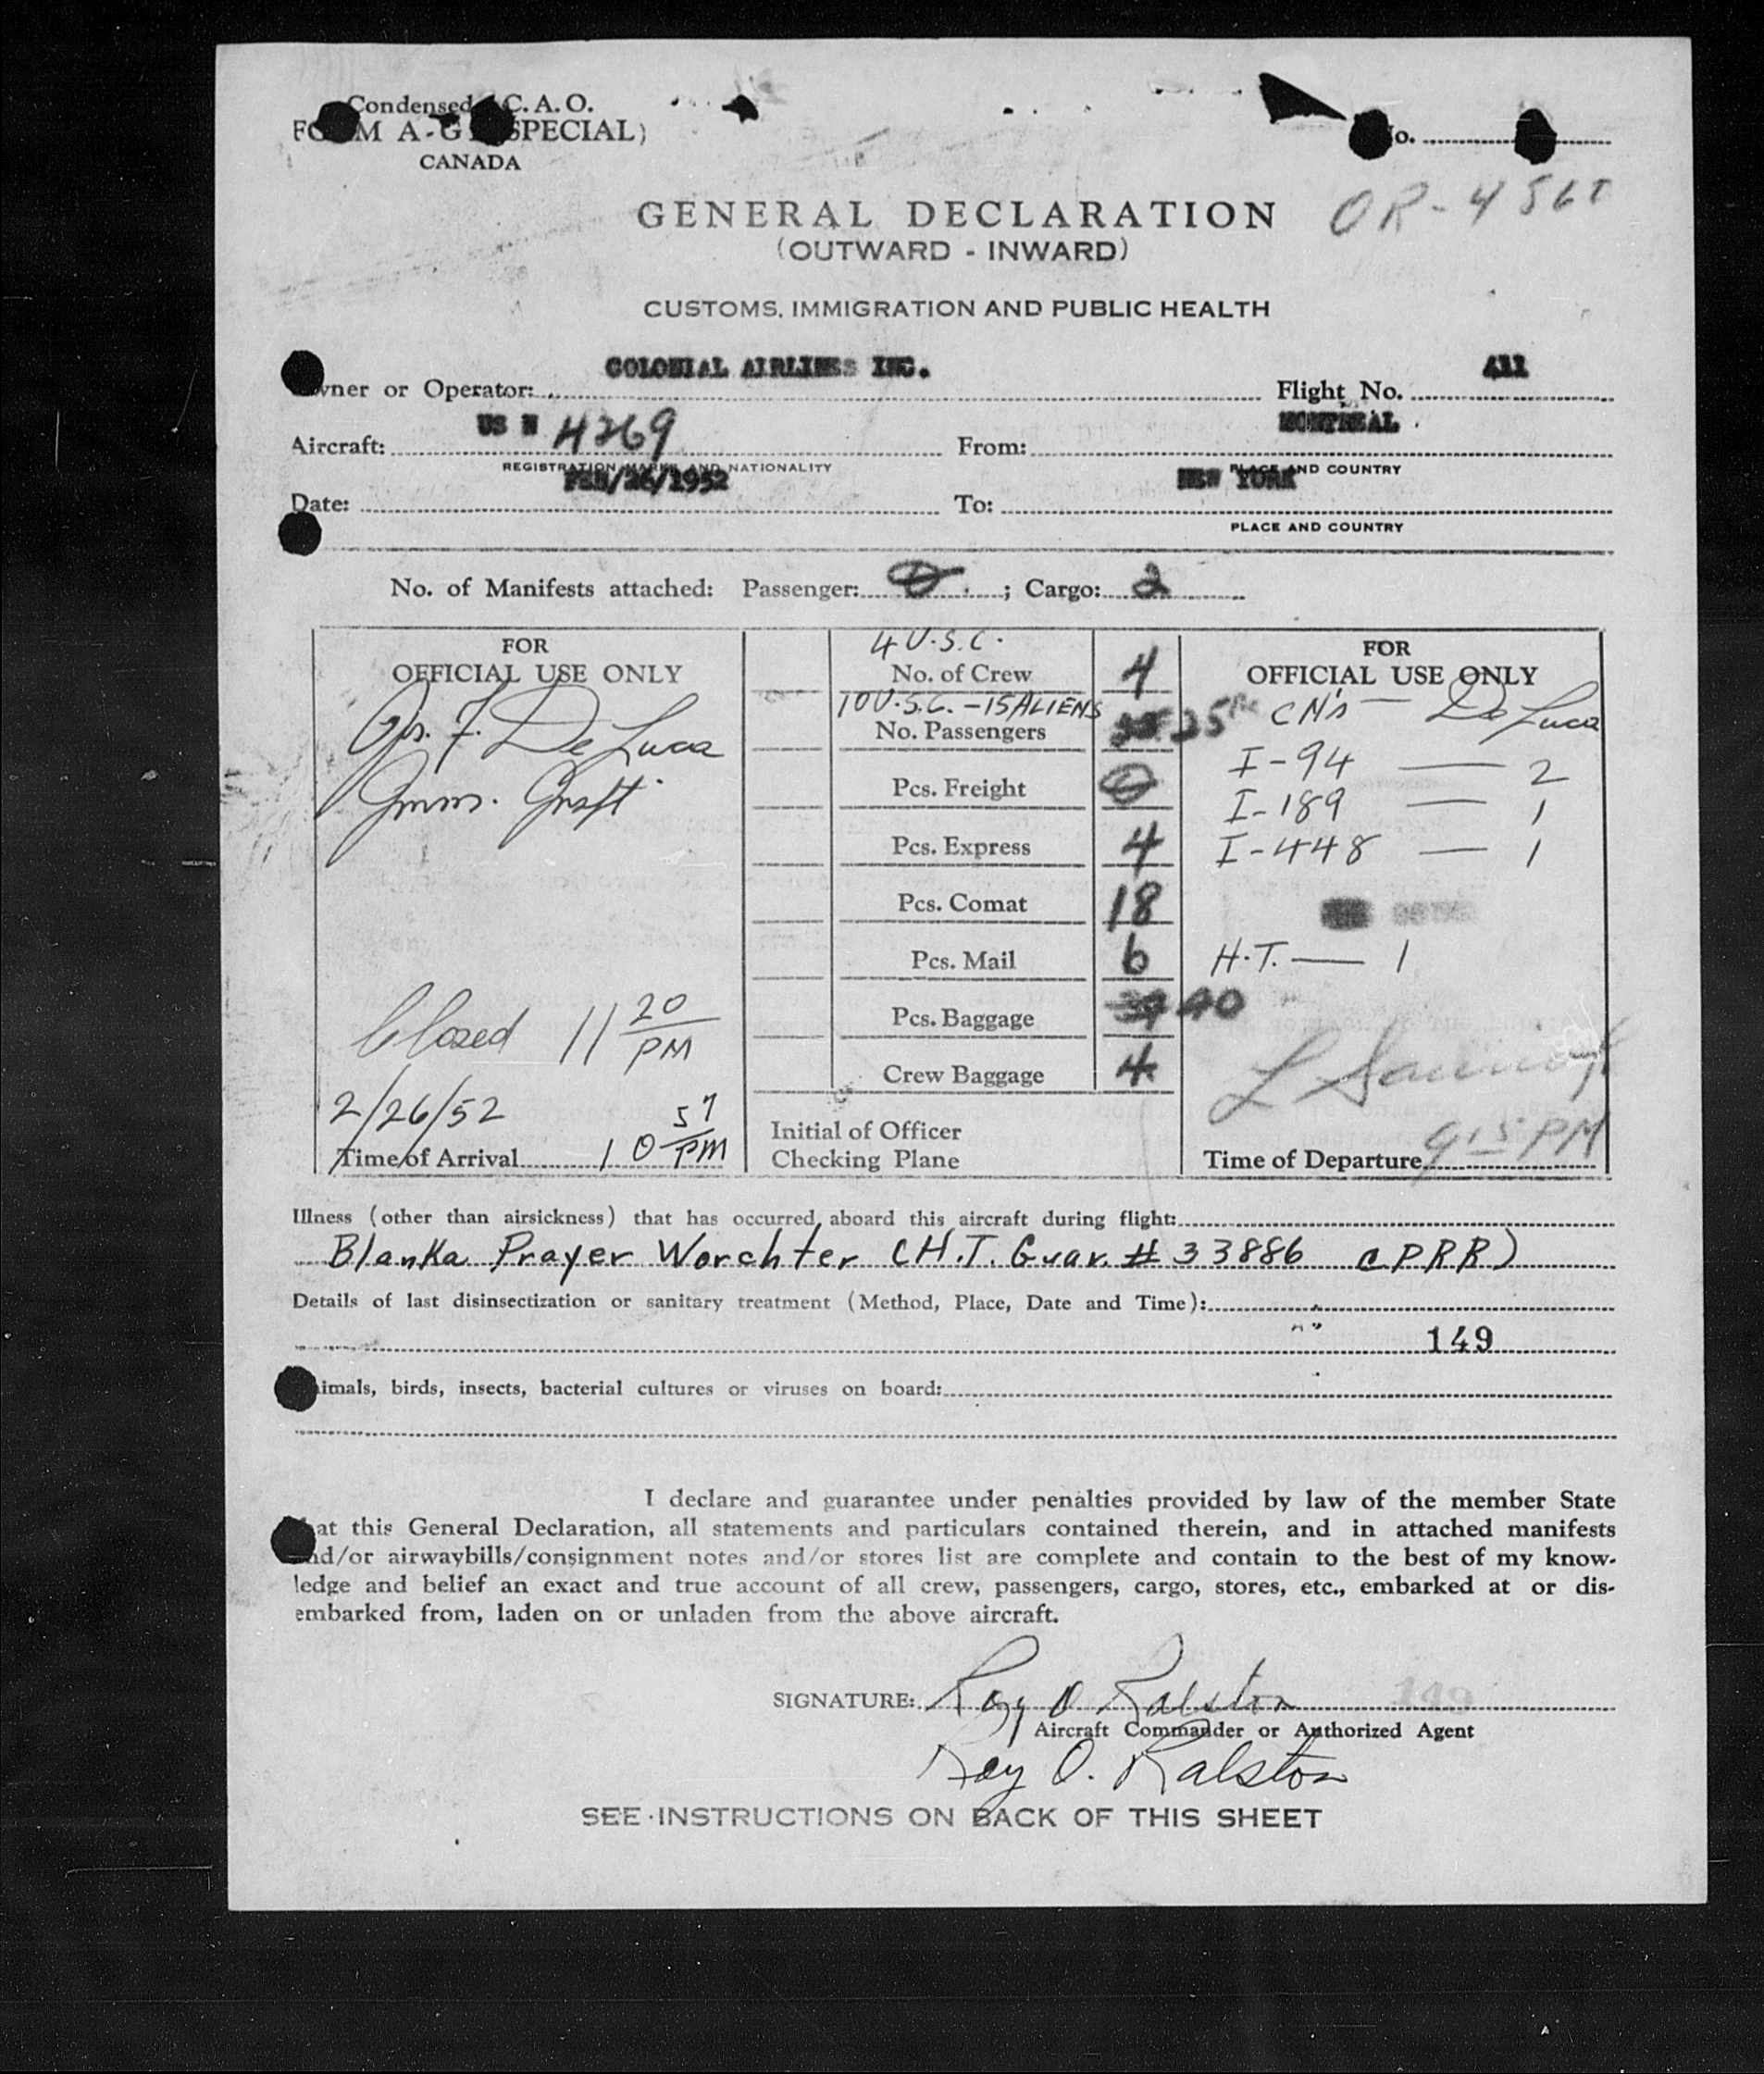 Condensed C. A. O.
FORM A-G (SPECIAL)
CANADA
No.
OR-4
GENERAL DECLARATION
(OUTWARD - INWARD)
CUSTOMS, IMMIGRATION AND PUBLIC HEALTH
Owner or Operator: COLONIAL AIRLINES INC. Flight No. 411
Aircraft: US N 4269 From: MONTREAL
REGISTRATION MARKS AND NATIONALITY PLACE AND COUNTRY
Date: FEB/26/1952 To: NEW YORK
PLACE AND COUNTRY
No. of Manifests attached: Passenger: 0 ; Cargo: 2
FOR
OFFICIAL USE ONLY
Ops. F. De Luca
Imm.
closed 11 20 PM
2/26/52
Time of Arrival 10 57 PM
4 U.S.C.
No. of Crew 4
10 U.S.C. - 15 ALIENS
No. Passengers 25
Pcs. Freight 0
Pcs. Express 4
Pcs. Comat 18
Pcs. Mail 6
Pcs. Baggage 39 40
Crew Baggage 4
Initial of Officer
Checking Plane
FOR
OFFICIAL USE ONLY
CN's — De Luca
I-94 — 2
I-189 — 1
I-448 — 1
H.T. — 1
Time of Departure 9 15 PM
Illness (other than airsickness) that has occurred aboard this aircraft during flight:
Blanka Prayer Worchter (H.T. Guar. # 33886 CPRR)
Details of last disinsectization or sanitary treatment (Method, Place, Date and Time):
149
Animals, birds, insects, bacterial cultures or viruses on board:
I declare and guarantee under penalties provided by law of the member State
that this General Declaration, all statements and particulars contained therein, and in attached manifests
and/or airwaybills/consignment notes and/or stores list are complete and contain to the best of my know-
ledge and belief an exact and true account of all crew, passengers, cargo, stores, etc., embarked at or dis-
embarked from, laden on or unladen from the above aircraft.
SIGNATURE: Roy O Ralston 149
Aircraft Commander or Authorized Agent
Roy O. Ralston
SEE INSTRUCTIONS ON BACK OF THIS SHEET